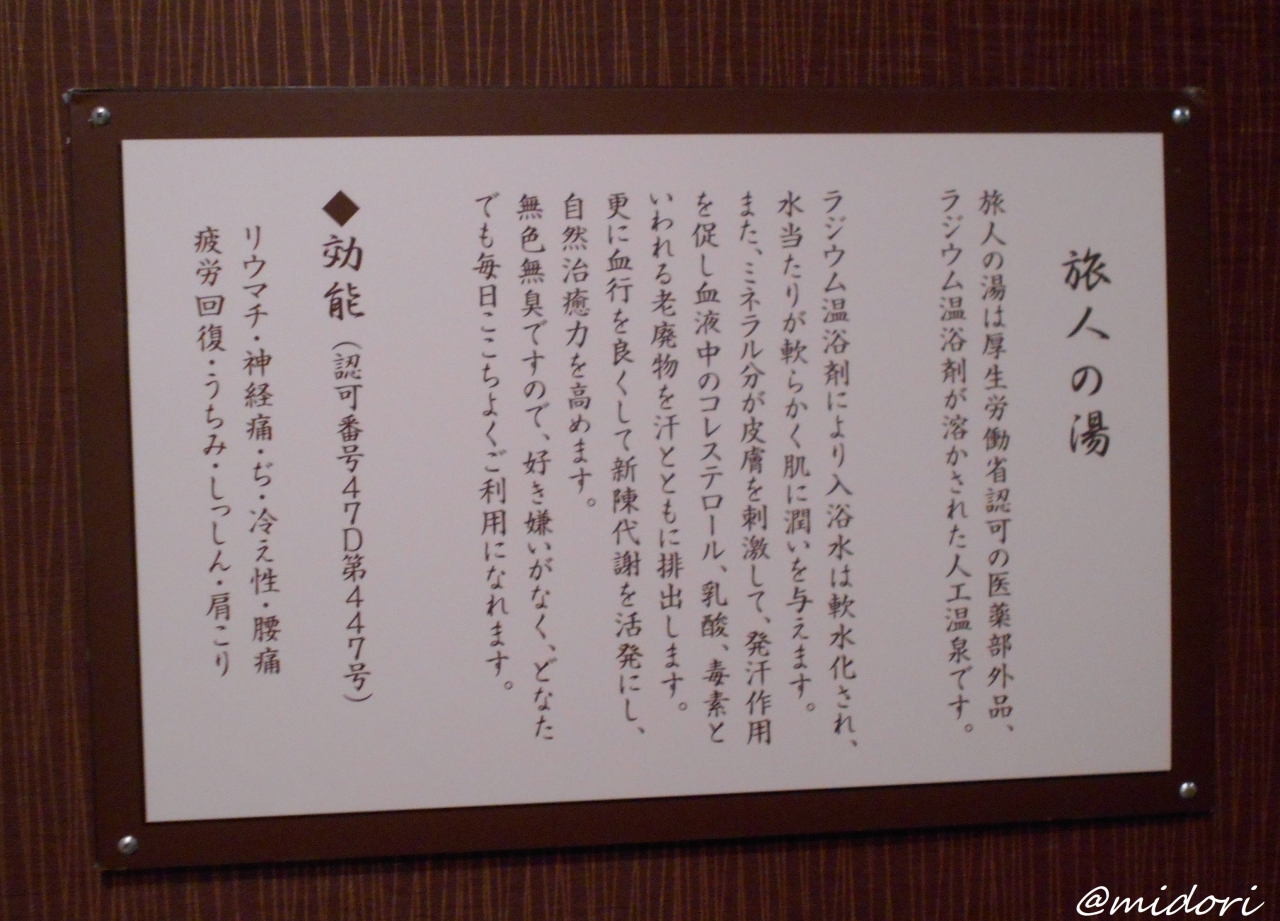 旅人の湯
旅人の湯は厚生労働省認可の医薬部外品、
ラジウム温浴剤が溶かされた人工温泉です。
ラジウム温浴剤により入浴水は軟水化され、
水当たりが軟らかく肌に潤いを与えます。
また、ミネラル分が皮膚を刺激して、発汗作用
を促し血液中のコレステロール、乳酸、毒素と
いわれる老廃物を汗とともに排出します。
更に血行を良くして新陳代謝を活発にし、
自然治癒力を高めます。
無色無臭ですので、好き嫌いがなく、どなた
でも毎日ここちよくご利用になれます。
◆効能（認可番号47D第447号）
リウマチ・神経痛・ぢ・冷え性・腰痛
疲労回復・うちみ・しっしん・肩こり
@midori